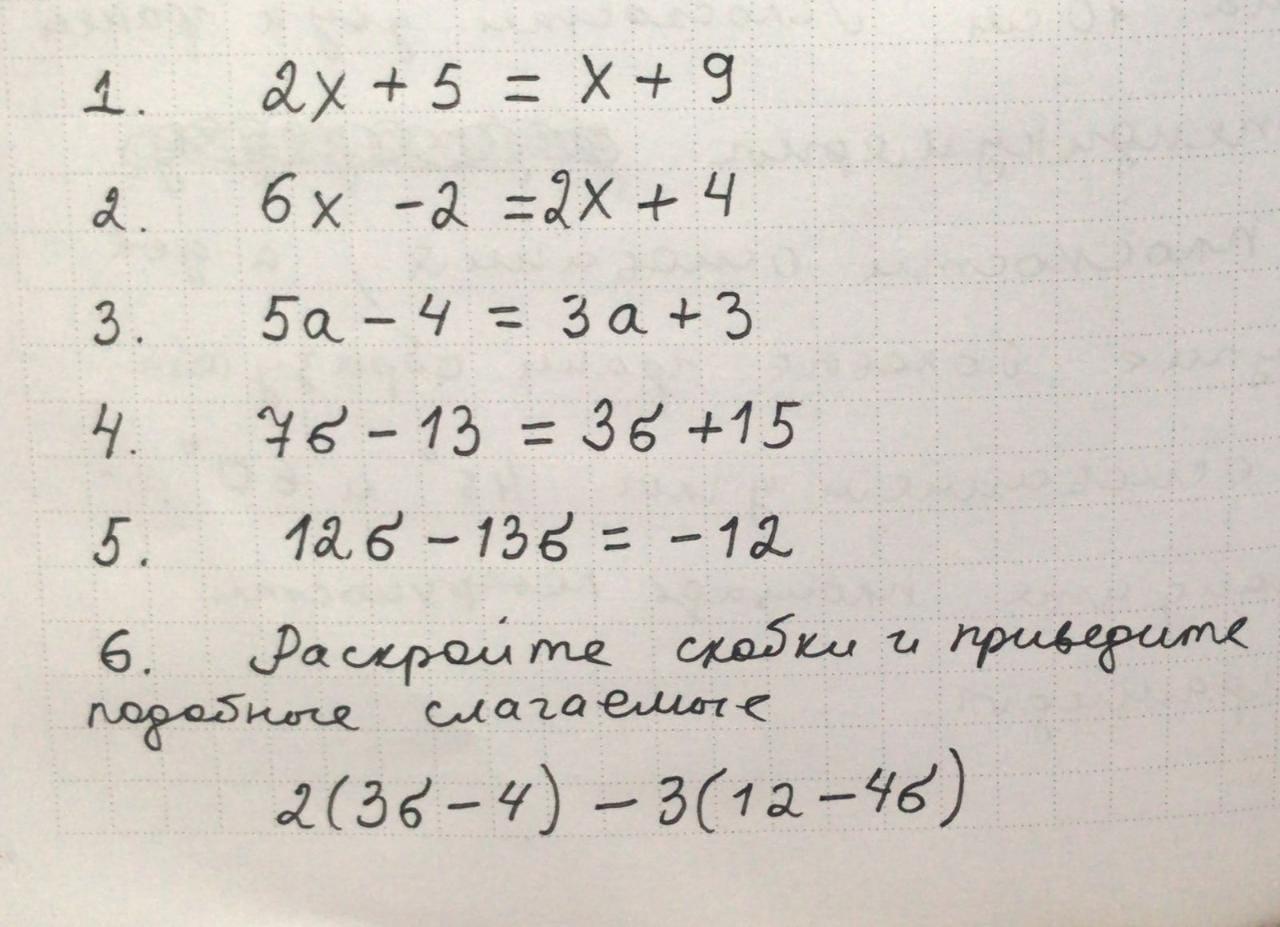 1. 2x + 5 = x + 9
2. 6x - 2 = 2x + 4
3. 5a - 4 = 3a + 3
4. 7б - 13 = 3б + 15
5. 12б - 13б = -12
6. Раскройте скобки и приведите
подобные слагаемые
2(3б - 4) - 3(12 - 4б)